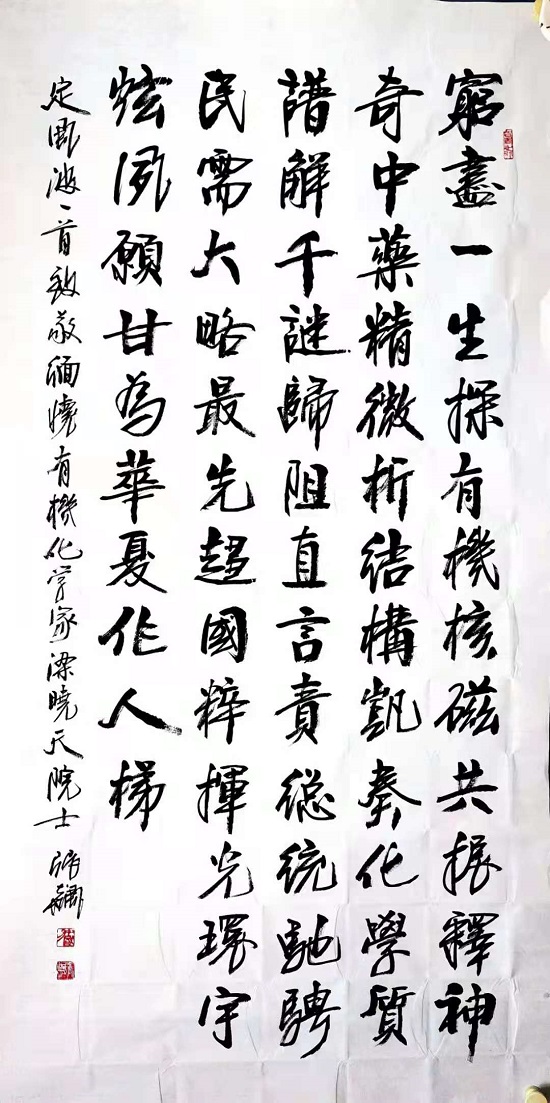 窮盡一生探有機核磁共振釋神
奇中藥精微析結構凱奏化學質
譜解千謎歸阻直言責總統馳騁
民需大略最先趨國粹揮光環宇
炫夙願甘為華夏作人梯
定風波一首致敬緬懷有機化学家梁曉天院士 張